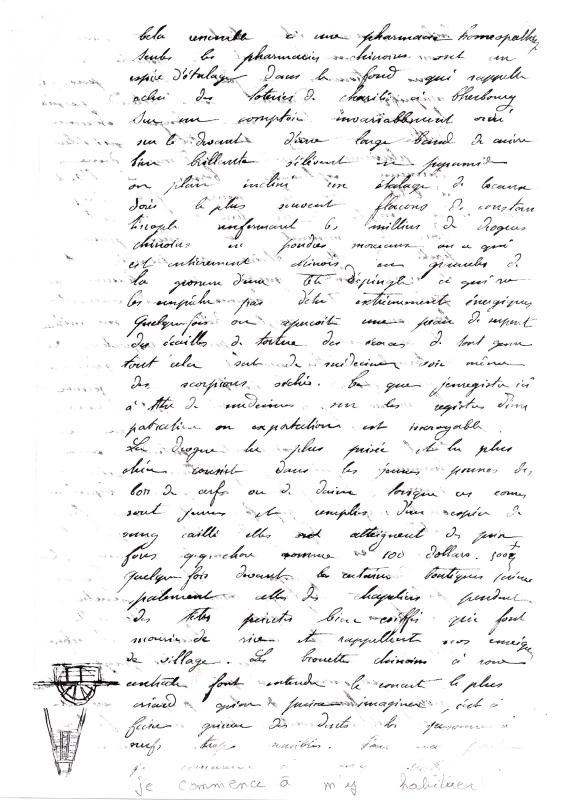 Cela ressemble à une pharmacie homeopathe
Seules les pharmacies chinoises ont un
espèce d'étalage dans le fond qui rappelle
celui des loteries de charité à Cherbourg
Sur un comptoir invariablement orné
sur le devant d'une large band de cuivre
bien brillante s'élèvent en pyramide
ou plan incliné un étalage de bocaux
dont le plus souvent flacons de constan
tinople renfermant les milliers de drogues
chinoises en poudres morceaux ou ce qui
est entièrement chinois en granules de
la grosseur d'une tête d'épingle ce qui ne
les empêche pas d'être extrêmement énergiques
Quelquefois on aperçoit une peau de serpent
des écailles de tortue des écorces de tout genre
tout cela sert de médecine voir même
des scorpions séchés. Ce que j'enregistre ici
à titre de médecines sur les registres d'im
portation ou exportation est incroyable
La drogue la plus prisée et la plus
chère consiste dans les jeunes pousses de
bois de cerfs ou de daim, lorsque ces cornes
sont jeunes et remplies d'un espèce de
sang caillé elles atteignent des prix
fous qq. chose comme 100 dollars. 500f
Quelque fois devant les certaines boutiques princi
palement celles des chapeliers pendent
des têtes peintes bien coiffés qui font
mourir de rire et rappellent nos enseignes
de village. Les brouettes chinoises à roue
centrale font entendre le concert le plus
criard qu'on puisse imaginer, c'est à
faire grincer des dents les personnes à
nerfs trop sensibles.
je commence à
je commence à m'y habituer